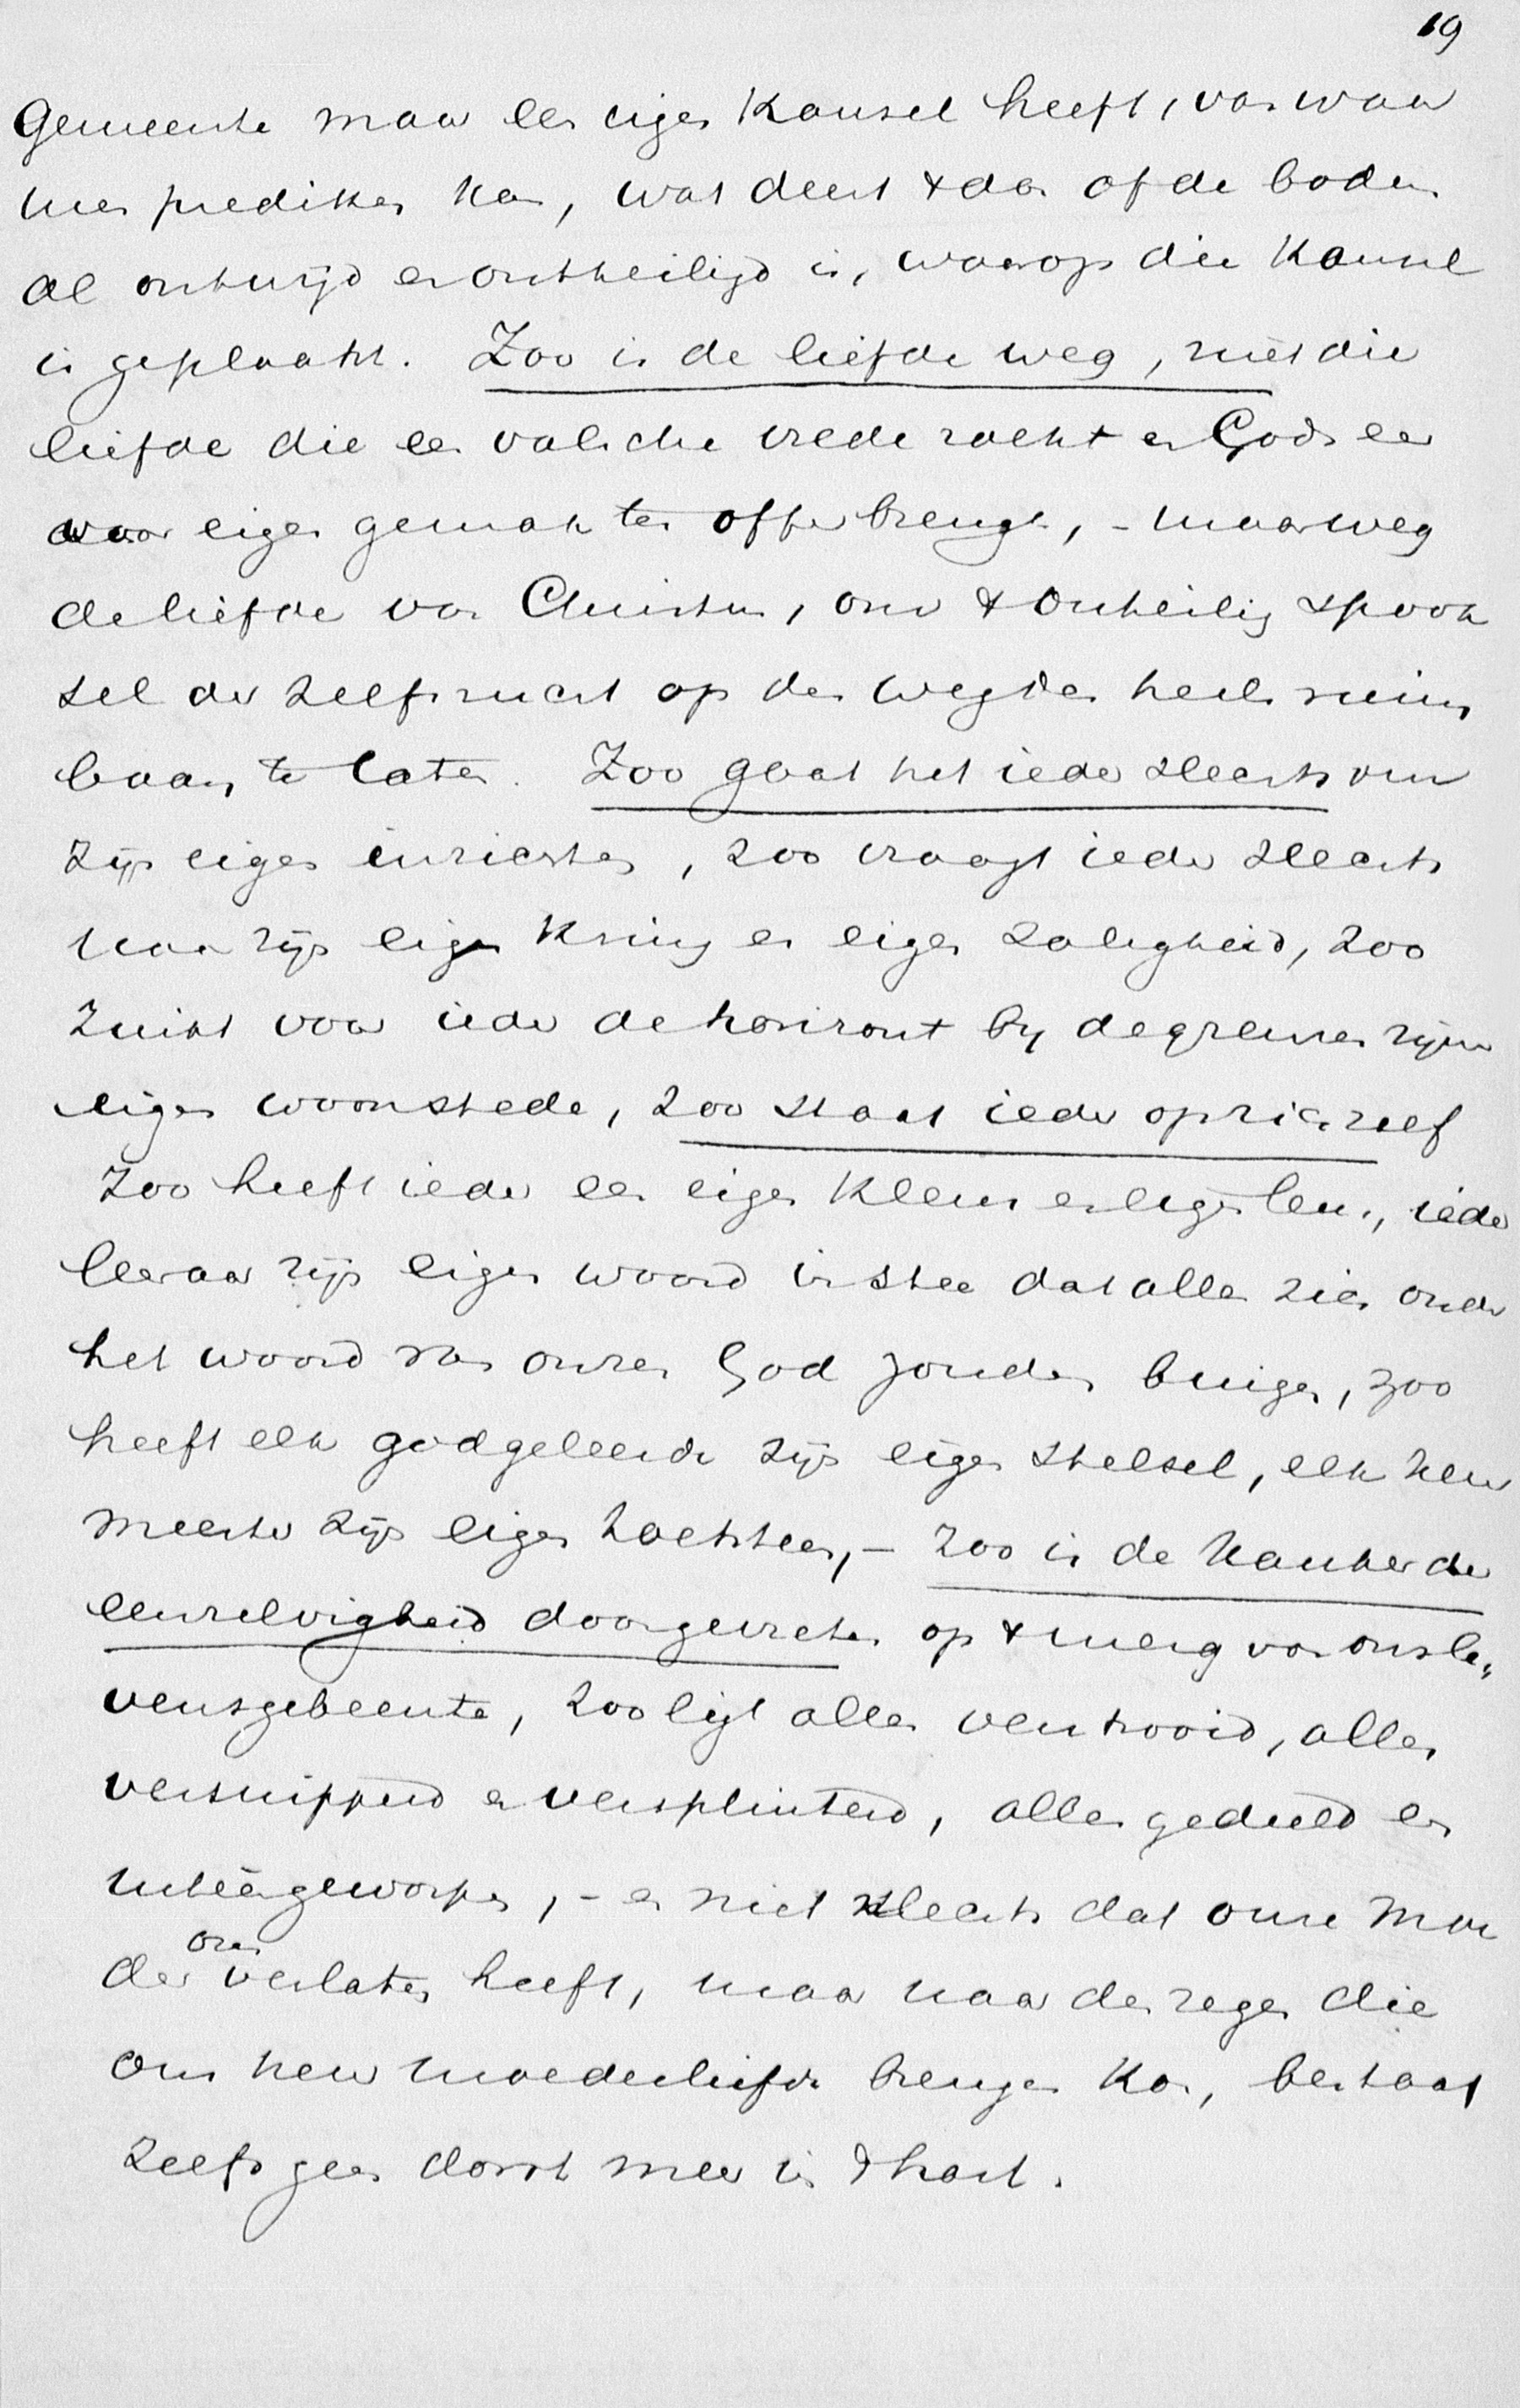 19
Gemeente maar een eigen Kansel heeft, van waar
men prediken kan, wat deert 't dan of de bodem
al ontwijd en ontheiligd is, waarop die Kansel
is geplaatst. Zoo is de liefde weg, niet die
liefde die een valsche vrede zoekt en Gods eer
voor eigen gemak ten offer brengt, - maar weg
de liefde van Christus, om 't onheilig spook
sel der zelfzucht op den weg des heils ruim
baan te laten. Zoo gaat het ieder slechts om
zijn eigen inzichten, zoo vraagt ieder slechts
naar zijn eigen Kring en eigen zaligheid, zoo
zinkt voor ieder de horizont bij de grenzen zijner
eigen woonstede, zoo staat ieder op zich zelf
Zoo heeft ieder een eigen Kleur en eigen leus, ieder
leeraar zijn eigen woord in stee dat allen zich onder
het woord van onzen God zouden buigen, zoo
heeft elk godgeleerde zijn eigen stelsel, elk leer
meester zijn eigen kochten, - Zoo is de Kanker der
eenzelvigheid doorgevreten op 't merg van ons le„
vensgebeente, zoo ligt alles verstrooid, alles
versnipperd en versplinterd, alles gedeeld en
uitééngeworpen, - en niet slechts dat onze Moe
der ons verlaten heeft, maar naar den zegen die
ons heur moederliefde brengen kon, bestaat
zelfs geen dorst meer in 't hart.